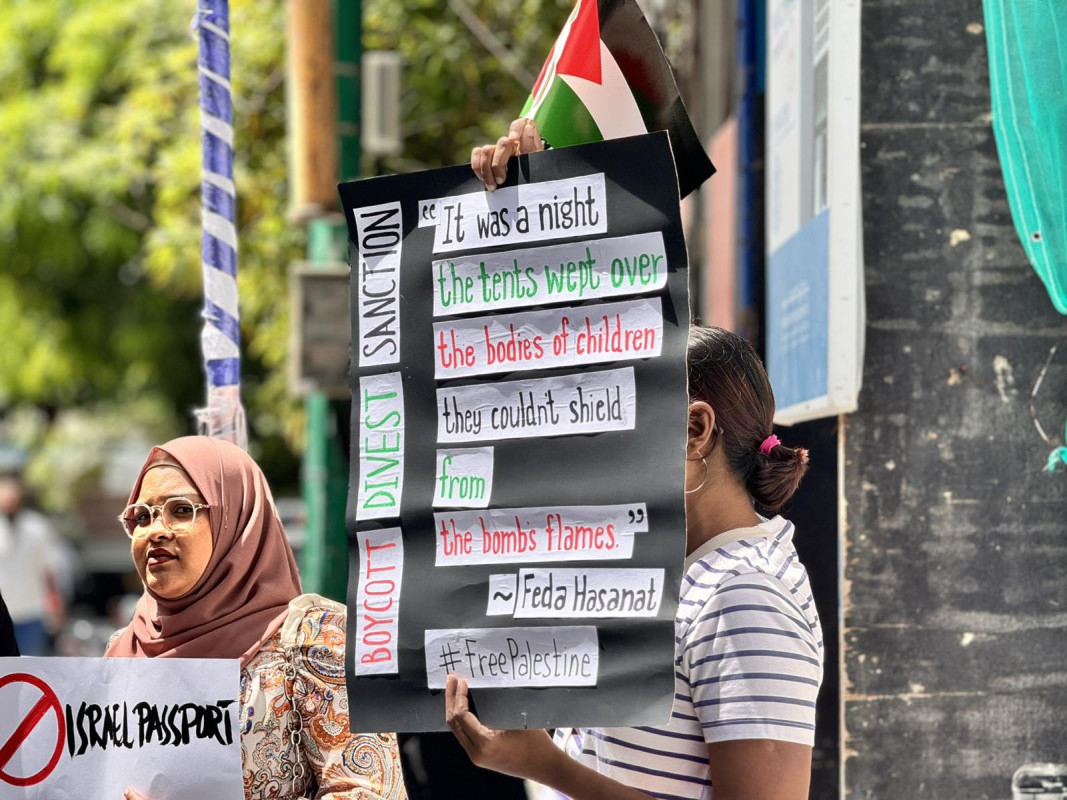 SANCTION
DIVEST
BOYCOTT
“It was a night
the tents wept over
the bodies of children
they couldn't shield
from
the bombs flames.”
~ Feda Hasanat
#FreePalestine
ISRAEL PASSPORT